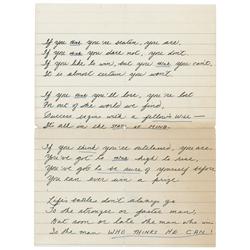 If you think you're beaten, you are.
If you think you dare not, you don't.
If you like to win, but you think you can't,
It is almost certain you won't.
If you think you'll lose, you're lost
For out of the world we find,
Success begins with a fellow's will —
It's all in the STATE OF MIND.
If you think you're outclassed, you are.
You've got to think high to rise,
You've got to be sure of yourself before
You can ever win a prize
Life's battles don't always go
To the stronger or faster man,
But soon or late the man who wins
Is the man WHO THINKS HE CAN!